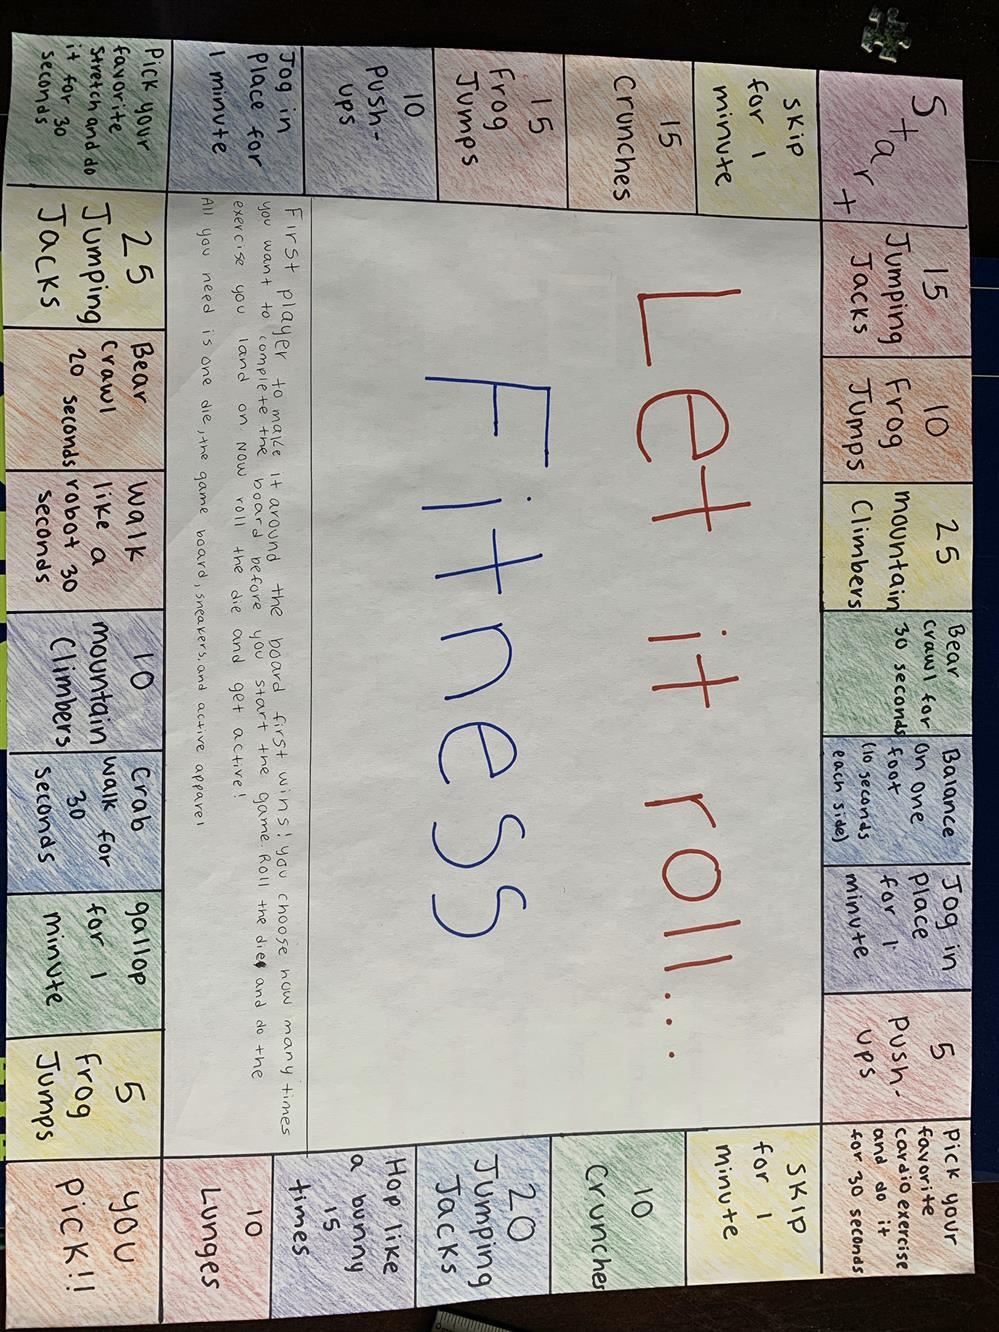 Start
15
Jumping
Jacks
10
Frog
Jumps
25
mountain
Climbers
Bear
crawl for
30 seconds
Balance
on one
foot
(10 seconds
each side)
Jog in
place
for 1
minute
5
Push-
ups
Pick your
favorite
cardio exercise
and do it
for 30 seconds
Skip
for 1
minute
10
Crunches
20
Jumping
Jacks
Hop like
a bunny
15
times
10
Lunges
you
Pick!!
5
frog
Jumps
gallop
for 1
minute
Crab
walk for
30
seconds
10
mountain
Climbers
walk
like a
robot 30
seconds
Bear
Crawl
20 seconds
25
Jumping
Jacks
Pick your
favorite
stretch and do
it for 30
seconds
Jog in
Place for
1 minute
10
Push-
ups
15
Frog
Jumps
15
Crunches
Skip
for 1
minute
Let it roll...
Fitness
First player to make it around the board first wins! you choose how many times
you want to complete the board before you start the game. Roll the die and do the
exercise you land on. Now roll the die and get active!
All you need is one die, the game board, sneakers, and active apparel